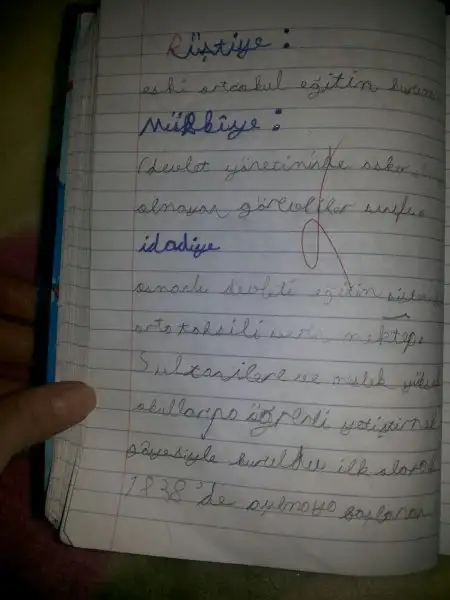 Rüştiye :
eski ortaokul eğitim kurum
Mülkiye :
(devlet yönetiminde asker
olmayan görevliler sınıfı
idadiye
osmaclu devleti egitim
orta tahsili veren mektep.
Sultanilere ve meslek yüksek
okullarına öğrenci yetiştirmek
gayesiyle kuruldu ilk olarak
1838'de açılmaya başlanan